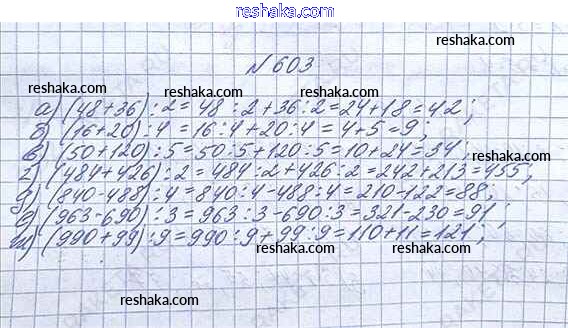 reshaka.com
№603
reshaka.com
reshaka.com reshaka.com reshaka.com
а) (48+36):2=48:2+36:2=24+18=42;
б) (16+20):4=16:4+20:4=4+5=9;
reshaka.com reshaka.com
в) (50+120):5=50:5+120:5=10+24=34;
г) (484+426):2=484:2+426:2=242+213=455;
д) (840-488):4=840:4-488:4=210-122=88;
е) (963-690):3=963:3-690:3=321-230=91;
ж) (990+99):9=990:9+99:9=110+11=121;
reshaka.com reshaka.com
reshaka.com reshaka.com